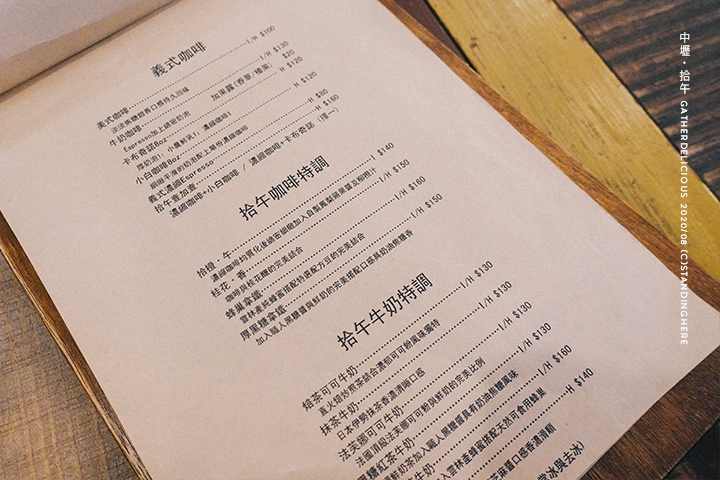 義式咖啡
美式咖啡 I/H $100
淡淡焦糖甜香口感持久回味
牛奶咖啡 I/H $130
加果露(香草/榛果) $20
Espresso加上綿密奶泡
卡布奇諾8oz H $120
厚奶泡!小量鮮乳!濃縮咖啡!
小白咖啡8oz H $120
細緻平滑的奶泡配上單份濃縮咖啡
義式濃縮Espresso H $80
拾午壹加壹 H $160
濃縮咖啡+小白咖啡 / 濃縮咖啡+卡布奇諾 (擇一)
拾午咖啡特調
拾橙.午 I $140
濃縮咖啡均質化後綿密細緻加入自製鳳梨蘋果醬及柳橙汁
桂花.香 I/H $150
咖啡與桂花釀的完美結合
蜂巢拿鐵 I/H $160
雲林產純蜂蜜搭配特選配方豆的完美結合
厚黑糖拿鐵 I/H $150
加入職人黑糖醬與鮮奶的完美搭配口感具奶油焦糖香
拾午牛奶特調
焙茶可可牛奶 I/H $130
直火焙炒煎茶結合濃郁可可粉風味獨特
抹茶牛奶 I/H $130
日本伊勢抹茶香濃清晰口感
法芙娜可可牛奶 I/H $130
法國頂級法芙娜可可粉與鮮奶的完美比例
黑糖紅茶牛奶 I/H $130
鮮奶茶加入職人黑糖醬具有奶油焦糖風味
牛奶 I/H $160
入雲林產蜂蜜搭配天然可食用蜂巢
H $140
芝麻醬口感香濃滑順
常冰與去冰)
中壢・拾午 GATHER DELICIOUS 2020/08 (C)STANDINGHERE